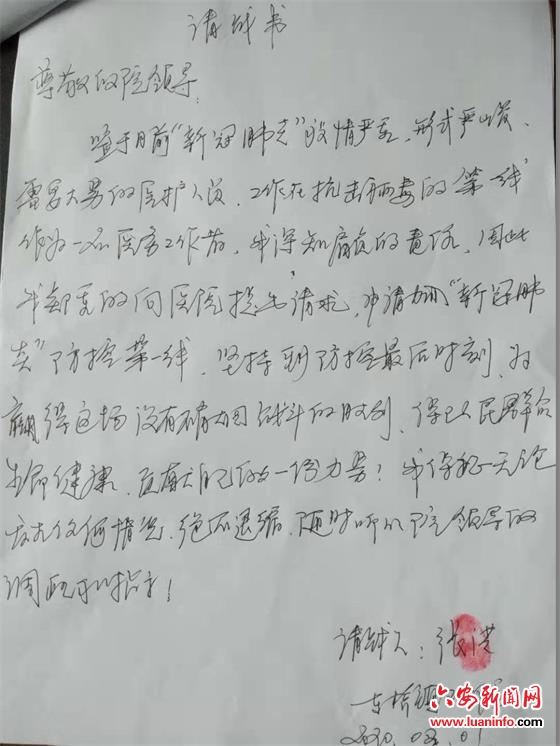 请战书
尊敬的院领导:
鉴于目前“新冠肺炎”疫情严重,形式严峻、
需要大量的医护人员,工作在抗击病毒的第一线
作为一名医务工作者,我深知肩负的责任,因此
我郑重的向医院提出请求,申请加入“新冠肺
炎”防控第一线,坚持到防控最后时刻,为
赢得这场没有硝烟战斗的胜利,保卫人民群众
生命健康,贡献自己的一份力量!我保证无论
任何情况,绝不退缩,随时听从院领导的
调配和指示!
请战人:张洪
2020.02.01
六安新闻网
www.luaninfo.com